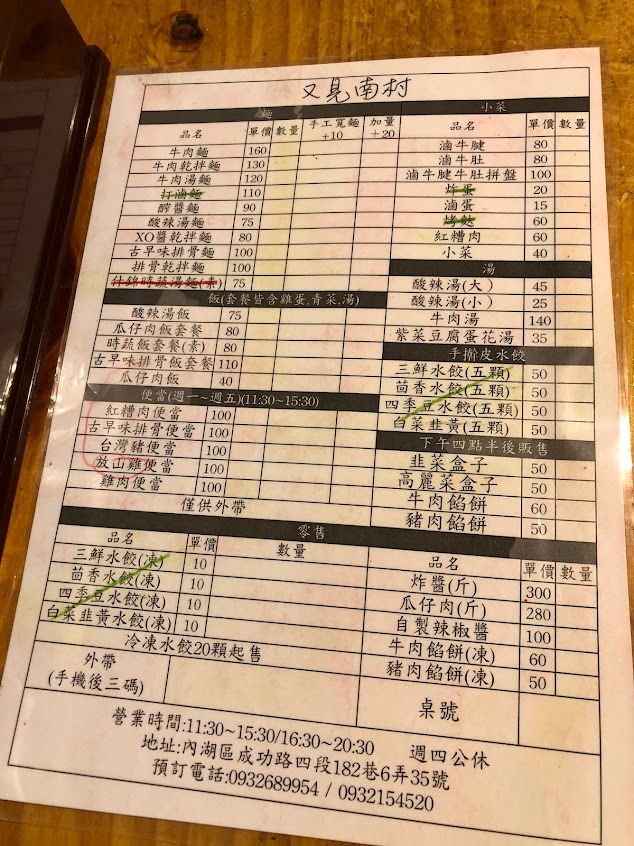 又見南村
麵
品名 單價 數量 手工寬麵+10 加量+20
牛肉麵 160
牛肉乾拌麵 130
牛肉湯麵 120
打滷麵 110
醡醬麵 90
酸辣湯麵 75
XO醬乾拌麵 80
古早味排骨麵 100
排骨乾拌麵 100
什錦時蔬湯麵(素) 75
飯(套餐皆含雞蛋,青菜,湯)
酸辣湯飯 75
瓜仔肉飯套餐 80
時蔬飯套餐(素) 80
古早味排骨飯套餐 110
瓜仔肉飯 40
便當(週一~週五)(11:30~15:30)
紅糟肉便當 100
古早味排骨便當 100
台灣豬便當 100
放山雞便當 100
雞肉便當 100
僅供外帶
小菜
品名 單價 數量
滷牛腱 80
滷牛肚 80
滷牛腱牛肚拼盤 100
炸蛋 20
滷蛋 15
烤麩 60
紅糟肉 60
小菜 40
湯
酸辣湯(大) 45
酸辣湯(小) 25
牛肉湯 140
紫菜豆腐蛋花湯 35
手擀皮水餃
三鮮水餃(五顆) 50
茴香水餃(五顆) 50
四季豆水餃(五顆) 50
白菜韭黃(五顆) 50
下午四點半後販售
韭菜盒子 50
高麗菜盒子 50
牛肉餡餅 60
豬肉餡餅 50
零售
品名 單價 數量
三鮮水餃(凍) 10
茴香水餃(凍) 10
四季豆水餃(凍) 10
白菜韭黃水餃(凍) 10
冷凍水餃20顆起售
外帶
(手機後三碼)
品名 單價 數量
炸醬(斤) 300
瓜仔肉(斤) 280
自製辣椒醬 100
牛肉餡餅(凍) 60
豬肉餡餅(凍) 50
桌號
營業時間:11:30~15:30/16:30~20:30 週四公休
地址:內湖區成功路四段182巷6弄35號
預訂電話:0932689954 / 0932154520